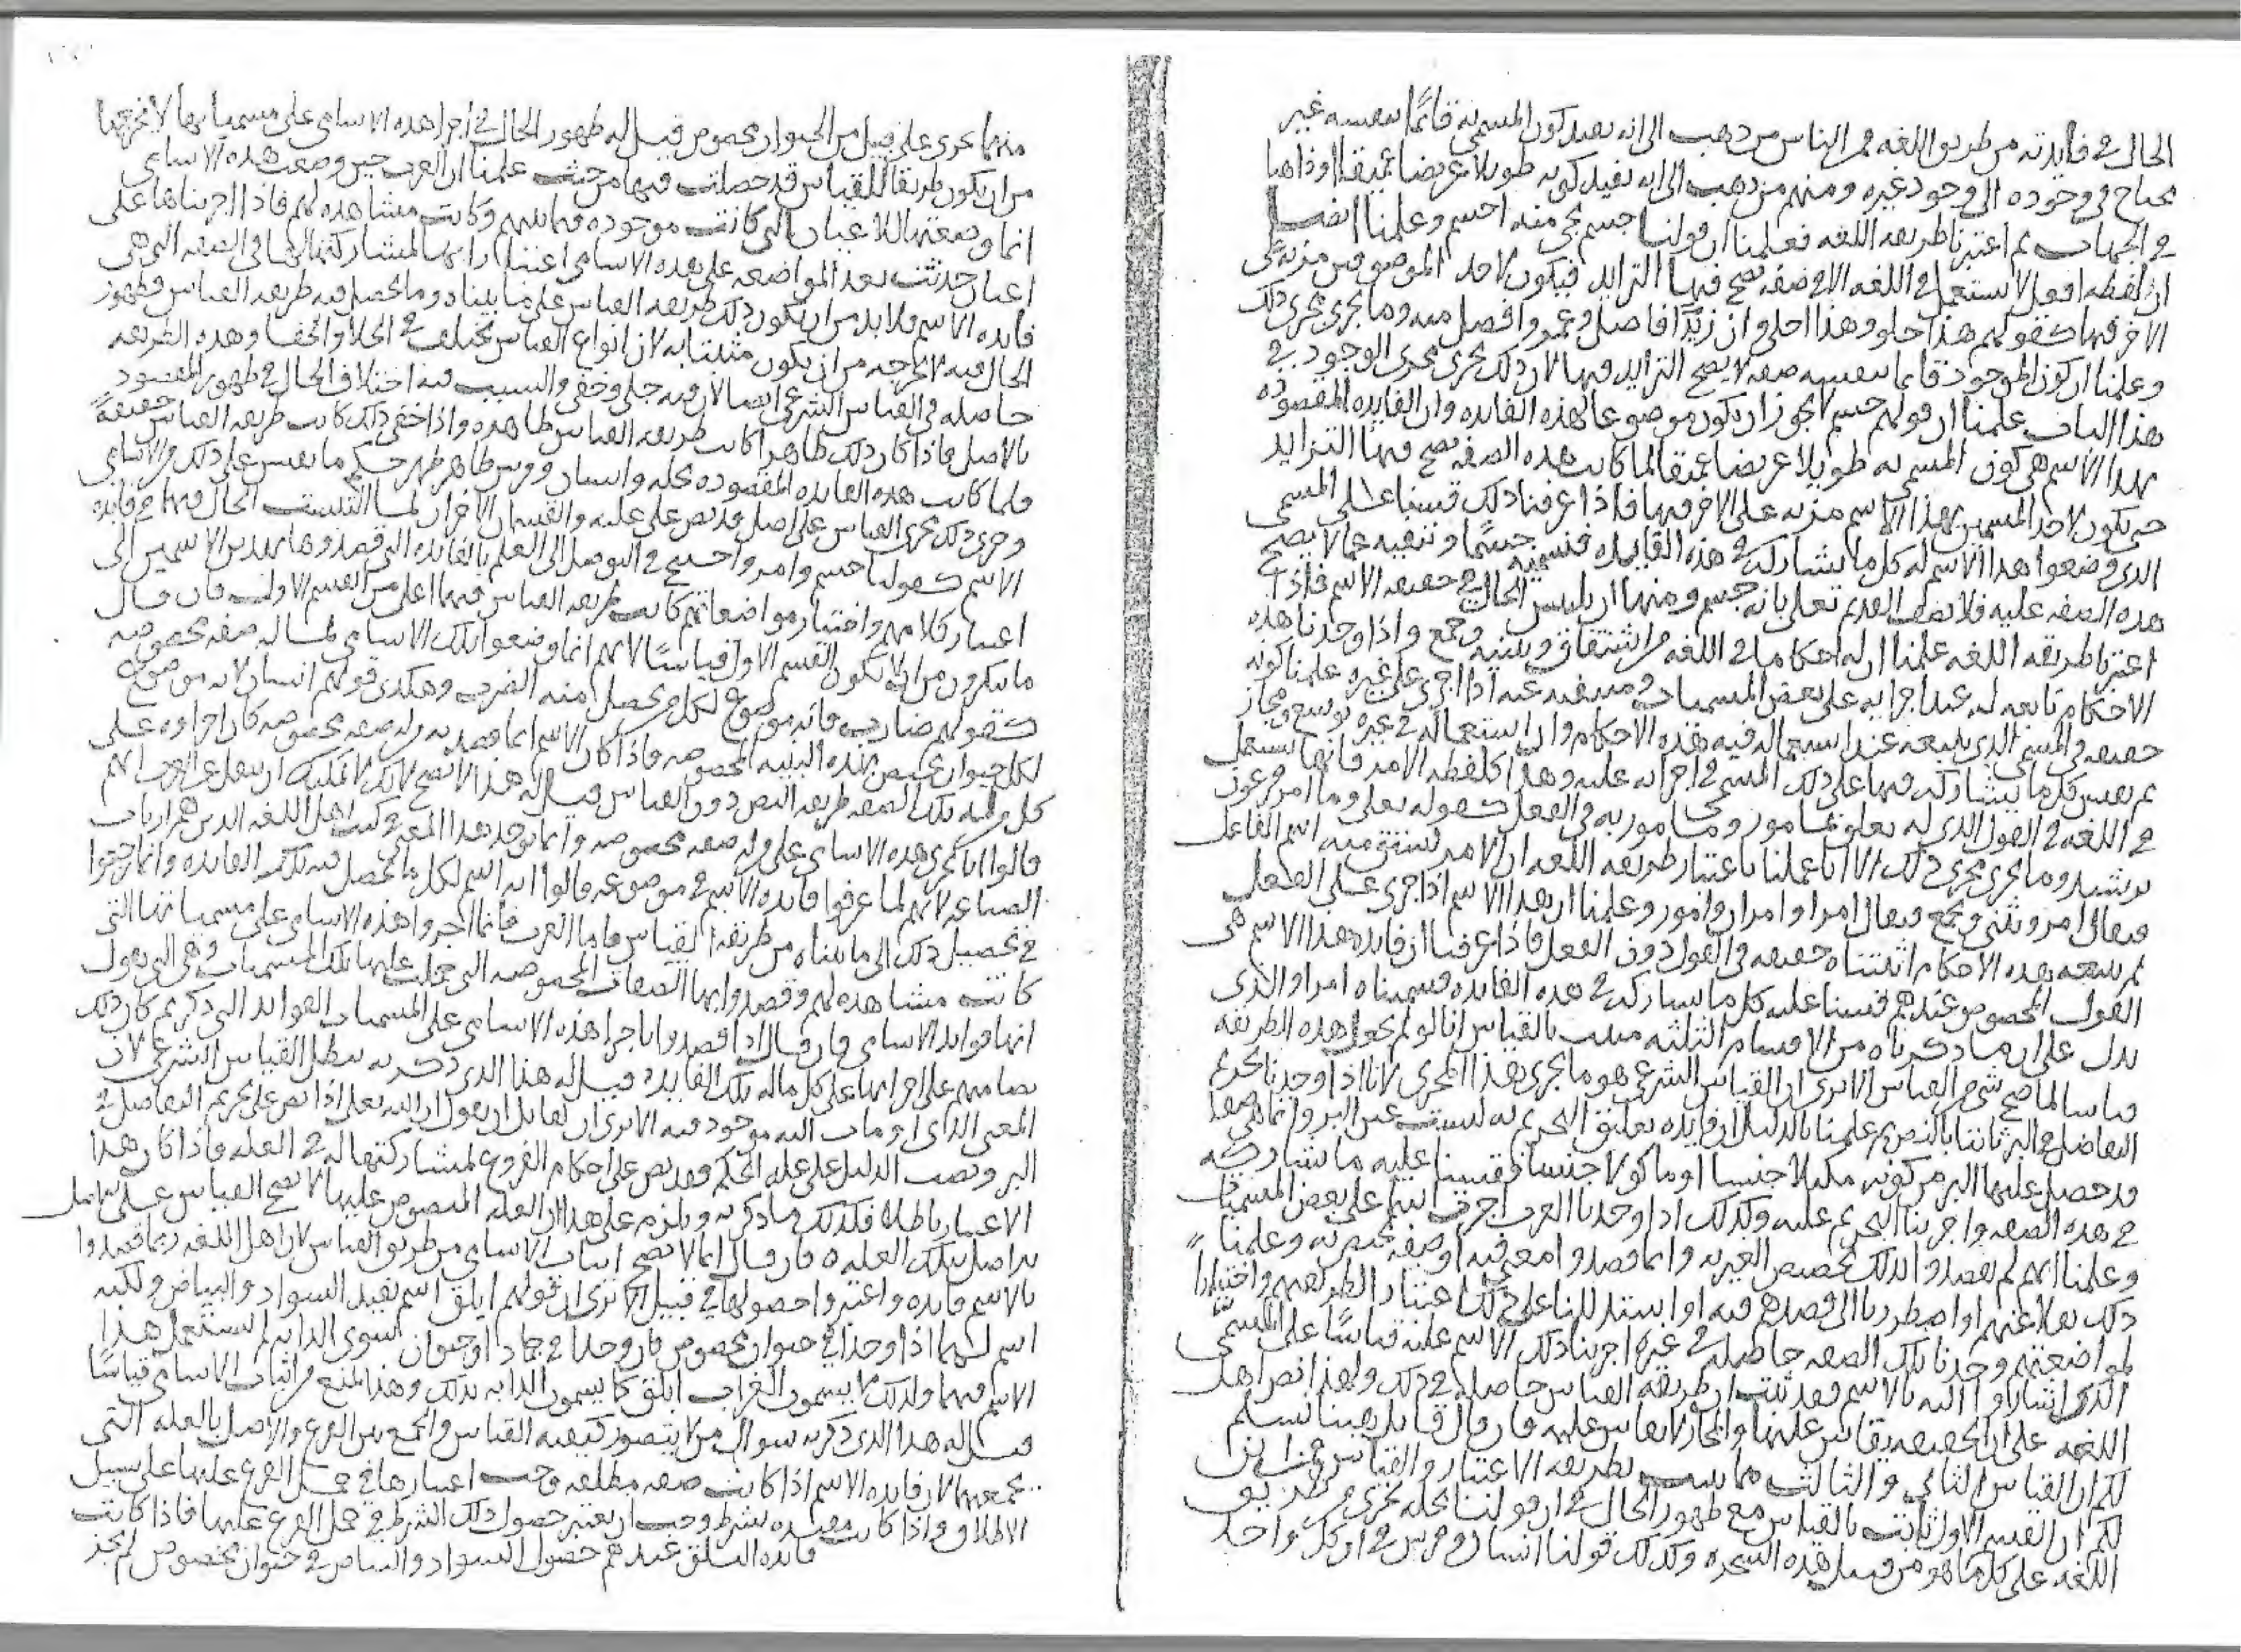 الحال في فايدته من طريق اللغه فمن الناس من ذهب الى انه يفيد كون المسمى به قائمًا بنفسه غير
محتاج في وجوده الى وجود غيره ومنهم من ذهب الى انه يفيد كونه طويلا عريضا عميقا او ذاهبا
في الجهات ثم اعتبرنا طريقه اللغه فعلمنا ان قولنا جسم يجي منه اجسم وعلمنا ايضا
ان لفظه افعل لا تستعمل في اللغه الا في صفه يصح فيها التزايد فيكون لاحد الموصوفين مزيه على
الاخر فيها كقولهم هذا حلو وهذا احلى وان زيدًا فاضل وعمرو افضل منه وما يجري مجرى ذلك
وعلمنا ان كون الموجود قائما بنفسه صفه لا يصح التزايد فيها لان ذلك يجري مجرى الوجود في
هذا الباب علمنا ان قولهم جسم لا يجوز ان يكون موضوعا لهذه الفايده وان الفايده المقصوده
بهذا الاسم هي كون المسمى به طويلا عريضا عميقا لما كانت هذه الصفه يصح فيها التزايد
حتى يكون لاحد المسميين بهذا الاسم مزيه على الاخر فيها فاذا عرفنا ذلك قسنا على المسمى
الذي وضعوا هذا الاسم له كل ما يشاركه في هذه الفايده فنسميه جسمًا وننفيه عما لا يصح
هذه الصفه عليه فلا نصف القديم تعلى بانه جسم ومنها ان يلتبس الحال في حقيقه الاسم فاذا
اعتبرنا طريقه اللغه علمنا ان له احكاما في اللغه من اشتقاق وتثنيه وجمع واذا وجدنا هذه
الاحكام تابعه له عند اجرايه على بعض المسميات ومنتفيه عنه اذا اجري على غيره علمنا كونه
حقيقه في المسمى الذي يتبعه عند استعماله فيه هذه الاحكام وان استعماله في غيره توسع ومجاز
ثم نقيس كل ما يشاركه فيها على ذلك المسمى في اجرائه عليه وهذا كلفظه الامر فانها تستعمل
في اللغه في القول الذي له تعلق بمامور ومامور به وفي الفعل كقوله تعلى وما امر فرعون
برشيد وما يجري مجرى ذلك الا انا علمنا باعتبار طريقه اللغه ان الامر يشتق منه اسم الفاعل
فيقال امر ويثنى ويجمع فيقال امرا وامران وامور وعلمنا ان هذا الاسم اذا جرى على الفعل
لم يتبعه هذه الاحكام اثبتناه حقيقه في القول دون الفعل فاذا عرفنا ان فايده هذا الاسم هي
القول المخصوص عندهم قسنا عليه كل ما يشاركه في هذه الفايده وسميناه امرا والذي
يدل على ان ما ذكرناه من الاقسام الثلثه مثبت بالقياس انا لو لم نجعل هذه الطريقه
قياسا لما صح شي من القياس الا ترى ان القياس الشرعي هو ما يجري هذا المجرى لانا اذا وجدنا تحريم
التفاضل في البر ثابتا بالنص ثم علمنا بالدليل ان فايده تعليق التحريم به ليست عين البر وانما هي صفه
قد حصل عليها البر من كونه مكيلا جنسا او ماكولا جنسا قسنا عليه ما يشاركه
في هذه الصفه واجرينا التحريم عليه وكذلك اذا وجدنا العرب اجرت اسما على بعض المسميات
وعلمنا انهم لم يقصدوا بذلك تخصيص العين به وانما قصدوا معنى فيه او صفه تختص به وعلمنا
ذلك نقلا عنهم او اضطررنا الى قصدهم فيه او استدللنا على ذلك اعتبارا لطريقتهم واختبارًا
لمواضعتهم وجدنا تلك الصفه حاصله في غيره اجرينا ذلك الاسم عليه قياسًا على المسمى
الذي اشاروا اليه بالاسم فقد ثبت ان طريقه القياس حاصله في ذلك ولهذا نص اهل
اللغه على ان الحقيقه يقاس عليها والمجاز لا يقاس عليه فان قال قايل هبنا نسلم
لكم ان القياس الثاني والثالث مما يثبت بطريقه الاعتبار والقياس فمن اين
لكم ان القسم الاول ثابت بالقياس مع ظهور الحال في ان قولنا نخله تجري من طريق
اللغه على كل ما هو من قبيل هذه الشجره وكذلك قولنا انسان وفرس في ان كل واحد
منهما يجري على قبيل من الحيوان مخصوص قيل له ظهور الحال في اجرا هذه الاسامي على مسمياتها لا يخرجها
من ان يكون طريقا للقياس قد حصلت فيها من حيث علمنا ان العرب حين وضعت هذه الاسامي
انما وضعتها للاعيان التي كانت موجوده فيما بينهم وكانت مشاهده لهم فاذا اجريناها على
اعيان حدثت بعد المواضعه على هذه الاسامي اعتبارا بها لمشاركتها لها في الصفه التي هي
فايده الاسم فلا بد من ان يكون ذلك طريقه القياس على ما بيناه وما يحصل فيه طريقه القياس فظهور
الحال فيه لا يخرجه من ان يكون مثبتا به لان انواع القياس تختلف في الجلا والخفا وهذه الطريقه
حاصله في القياس الشرعي ايضا لان فيه جلي وخفي والسبب فيه اختلاف الحال في ظهور المقصود
بالاصل فاذا كان ذلك ظاهرا كانت طريقه القياس ظاهره واذا خفي ذلك كانت طريقه القياس خفيةً
فلما كانت هذه الفايده المقصوده بنخله وانسان وفرس ظاهره ظهر حكم ما يقيس على ذلك من الاسامي
وجرى ذلك مجرى القياس على اصل قد نص على علته والقسمان الاخران لما التبست الحال فيهما في فايده
الاسم كقولنا جسم وامر واحتيج في التوصل الى العلم بالفايده التي قصدوها بهذين الاسمين الى
اعتبار كلامهم واختبار مواضعاتهم كانت طريقه القياس فيهما اعلى من القسم الاول فان قال
ما تنكرون من ان لا يكون القسم الاول قياسًا لانهم انما وضعوا تلك الاسامي لما له صفه مخصوصه
كقولهم ضارب فانه موضوع لكل من يحصل منه الضرب وهكذى قولهم انسان لانه موضوع
لكل حيوان يختص بهذه البنيه المخصوصه فاذا كان الاسم انما قصد به من له صفه مخصوصه كان اجراوه على
كل من له تلك الصفه طريقه النص دون القياس قيل له هذا لا يصح لانك لا يمكنك ان تنقل عن العرب انهم
قالوا انا نجري هذه الاسامي على من له صفه مخصوصه وانما يوجد هذا المعنى في كتب اهل اللغه الذين هم ارباب
الصناعه لانهم لما عرفوا فايده الاسم في موضوعه قالوا انه اسم لكل ما يحصل فيه تلك الفايده وانما رجعوا
في تحصيل ذلك الى ما بيناه من طريقه القياس فاما العرب فانما اجروا هذه الاسامي على مسمياتها التي
كانت مشاهده لهم وقصدوا بها الصفات المخصوصه التي حصلت عليها تلك المسميات وهي التي يقول
انها فوايد الاسامي فان قال اذا قصدوا باجرا هذه الاسامي على المسميات الفوايد التي ذكرتم كان ذلك
نصا منهم على اجرائها على كل ما له تلك الفايده قيل له هذا الذي ذكرته يبطل القياس الشرعي لان
المعنى الذي اومات اليه موجود فيه الا ترى ان لقايل ان يقول ان الله تعلى اذا نص على تحريم التفاضل في
البر ونصب الدليل على عله الحكم فقد نص على احكام الفروع لمشاركتها له في العله فاذا كان هذا
الاعتبار باطلا فكذلك ما ذكرته ويلزم على هذا ان العله المنصوص عليها لا يصح القياس على
اصل بتلك العله ه فان قال انما لا يصح اثبات الاسامي من طريق القياس لان اهل اللغه ربما قصدوا
بالاسم فايده واعتبروا حصولها في قبيل الا ترى ان قولهم ابلق اسم يفيد السواد والبياض ولكنه
اسم لهما اذا وجدا في حيوان مخصوص فان وجدا في جماد او حيوان سوى الدابه لم يستعمل هذا
الاسم فيهما ولذلك لا يسمون الغراب ابلق كما يسمون الدابه بذلك وهذا يمنع من اثبات الاسامي قياسًا
قيل له هذا الذي ذكرته سوال من لا يتصور كيفيه القياس والجمع بين الفرع والاصل بالعله التي
تجمعهما لان فايده الاسم اذا كانت صفه مطلقه وجب اعتبارها في حمل الفرع عليها على سبيل
الاطلاق واذا كانت مقيده بشرط وجب ان يعتبر حصول ذلك الشرط في حمل الفرع عليها فاذا كانت
فايده البلق عندهم حصول السواد والبياض في حيوان مخصوص لم يجز